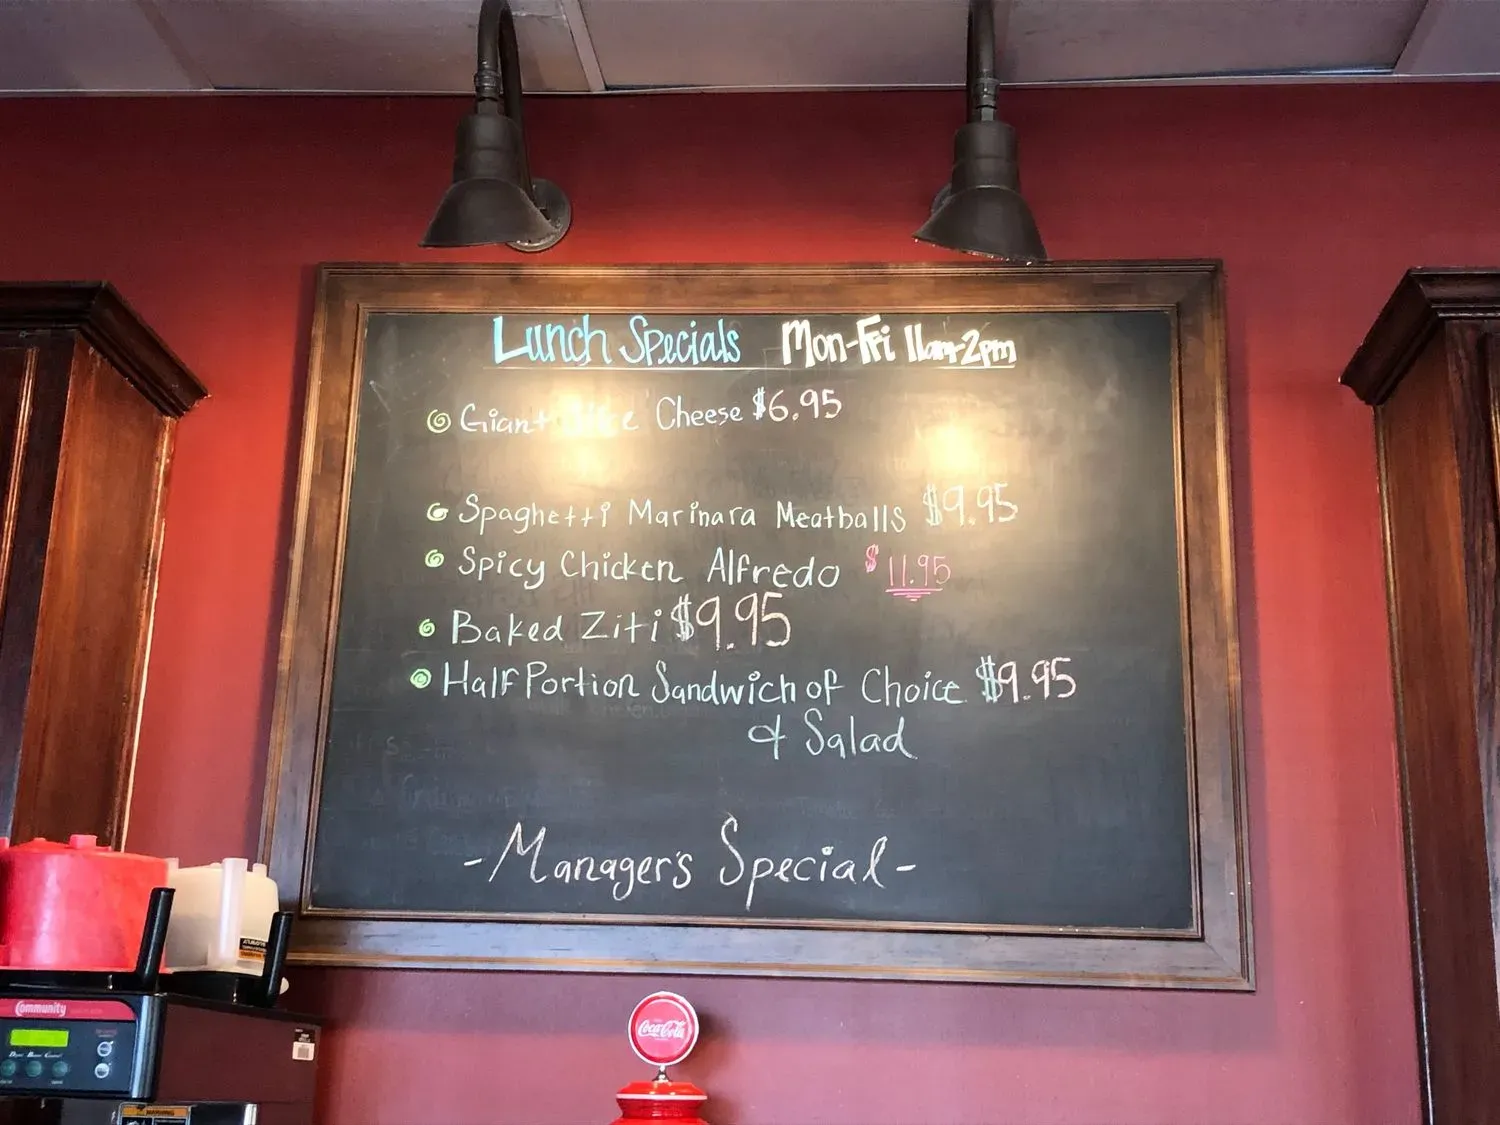 Lunch Specials Mon-Fri 11am-2pm
Giant Slice Cheese $6.95
Spaghetti Marinara Meatballs $9.95
Spicy Chicken Alfredo $11.95
Baked Ziti $9.95
Half Portion Sandwich of Choice $9.95
& Salad
-Manager's Special-
Community
Coca-Cola
WARNING